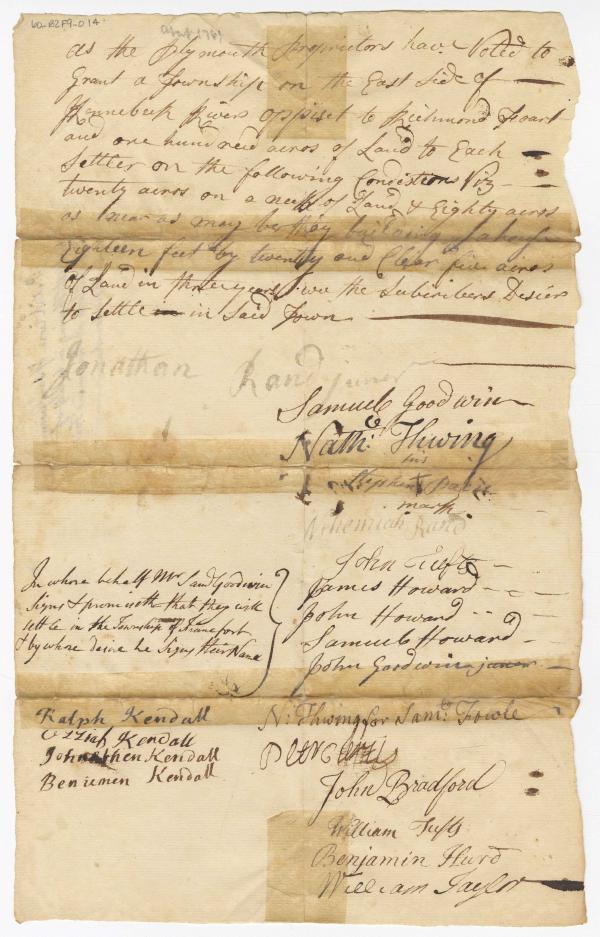 60-B2F9-014
as the Plymouth Proprietors have Voted to
Grant a Township on the East Side of
Kennebeck River oppiset to Richmond Foart
and one hundred acros of Land to Each
Settler on the following Condistions Viz
twenty acros on a neck of Land & Eighty acros
as near as may be they building a house
Eighteen feet by twenty and Clear five acros
of Land in three years we the Subcribers Desier
to Settle in Said Town
Jonathan Rand juner
Samuel Goodwin
Nathl. Thwing
his
Stephen
mark
Nehemiah Rand
John Tufts
James Howard
John Howard
Samuel Howard
John Goodwin juner
In whose behalf Mr Saml Goodwin
Signs & promiseth that they will
settle in the Township of Francfort
& by whose desire he Signs their Name
N. Thwing for Saml. Fowle
Ralph Kendall
Uzziah Kendall
Jonathen Kendall
Beniemen Kendall
John Bradford
William Tufts
Benjamin Hurd
William Taylor